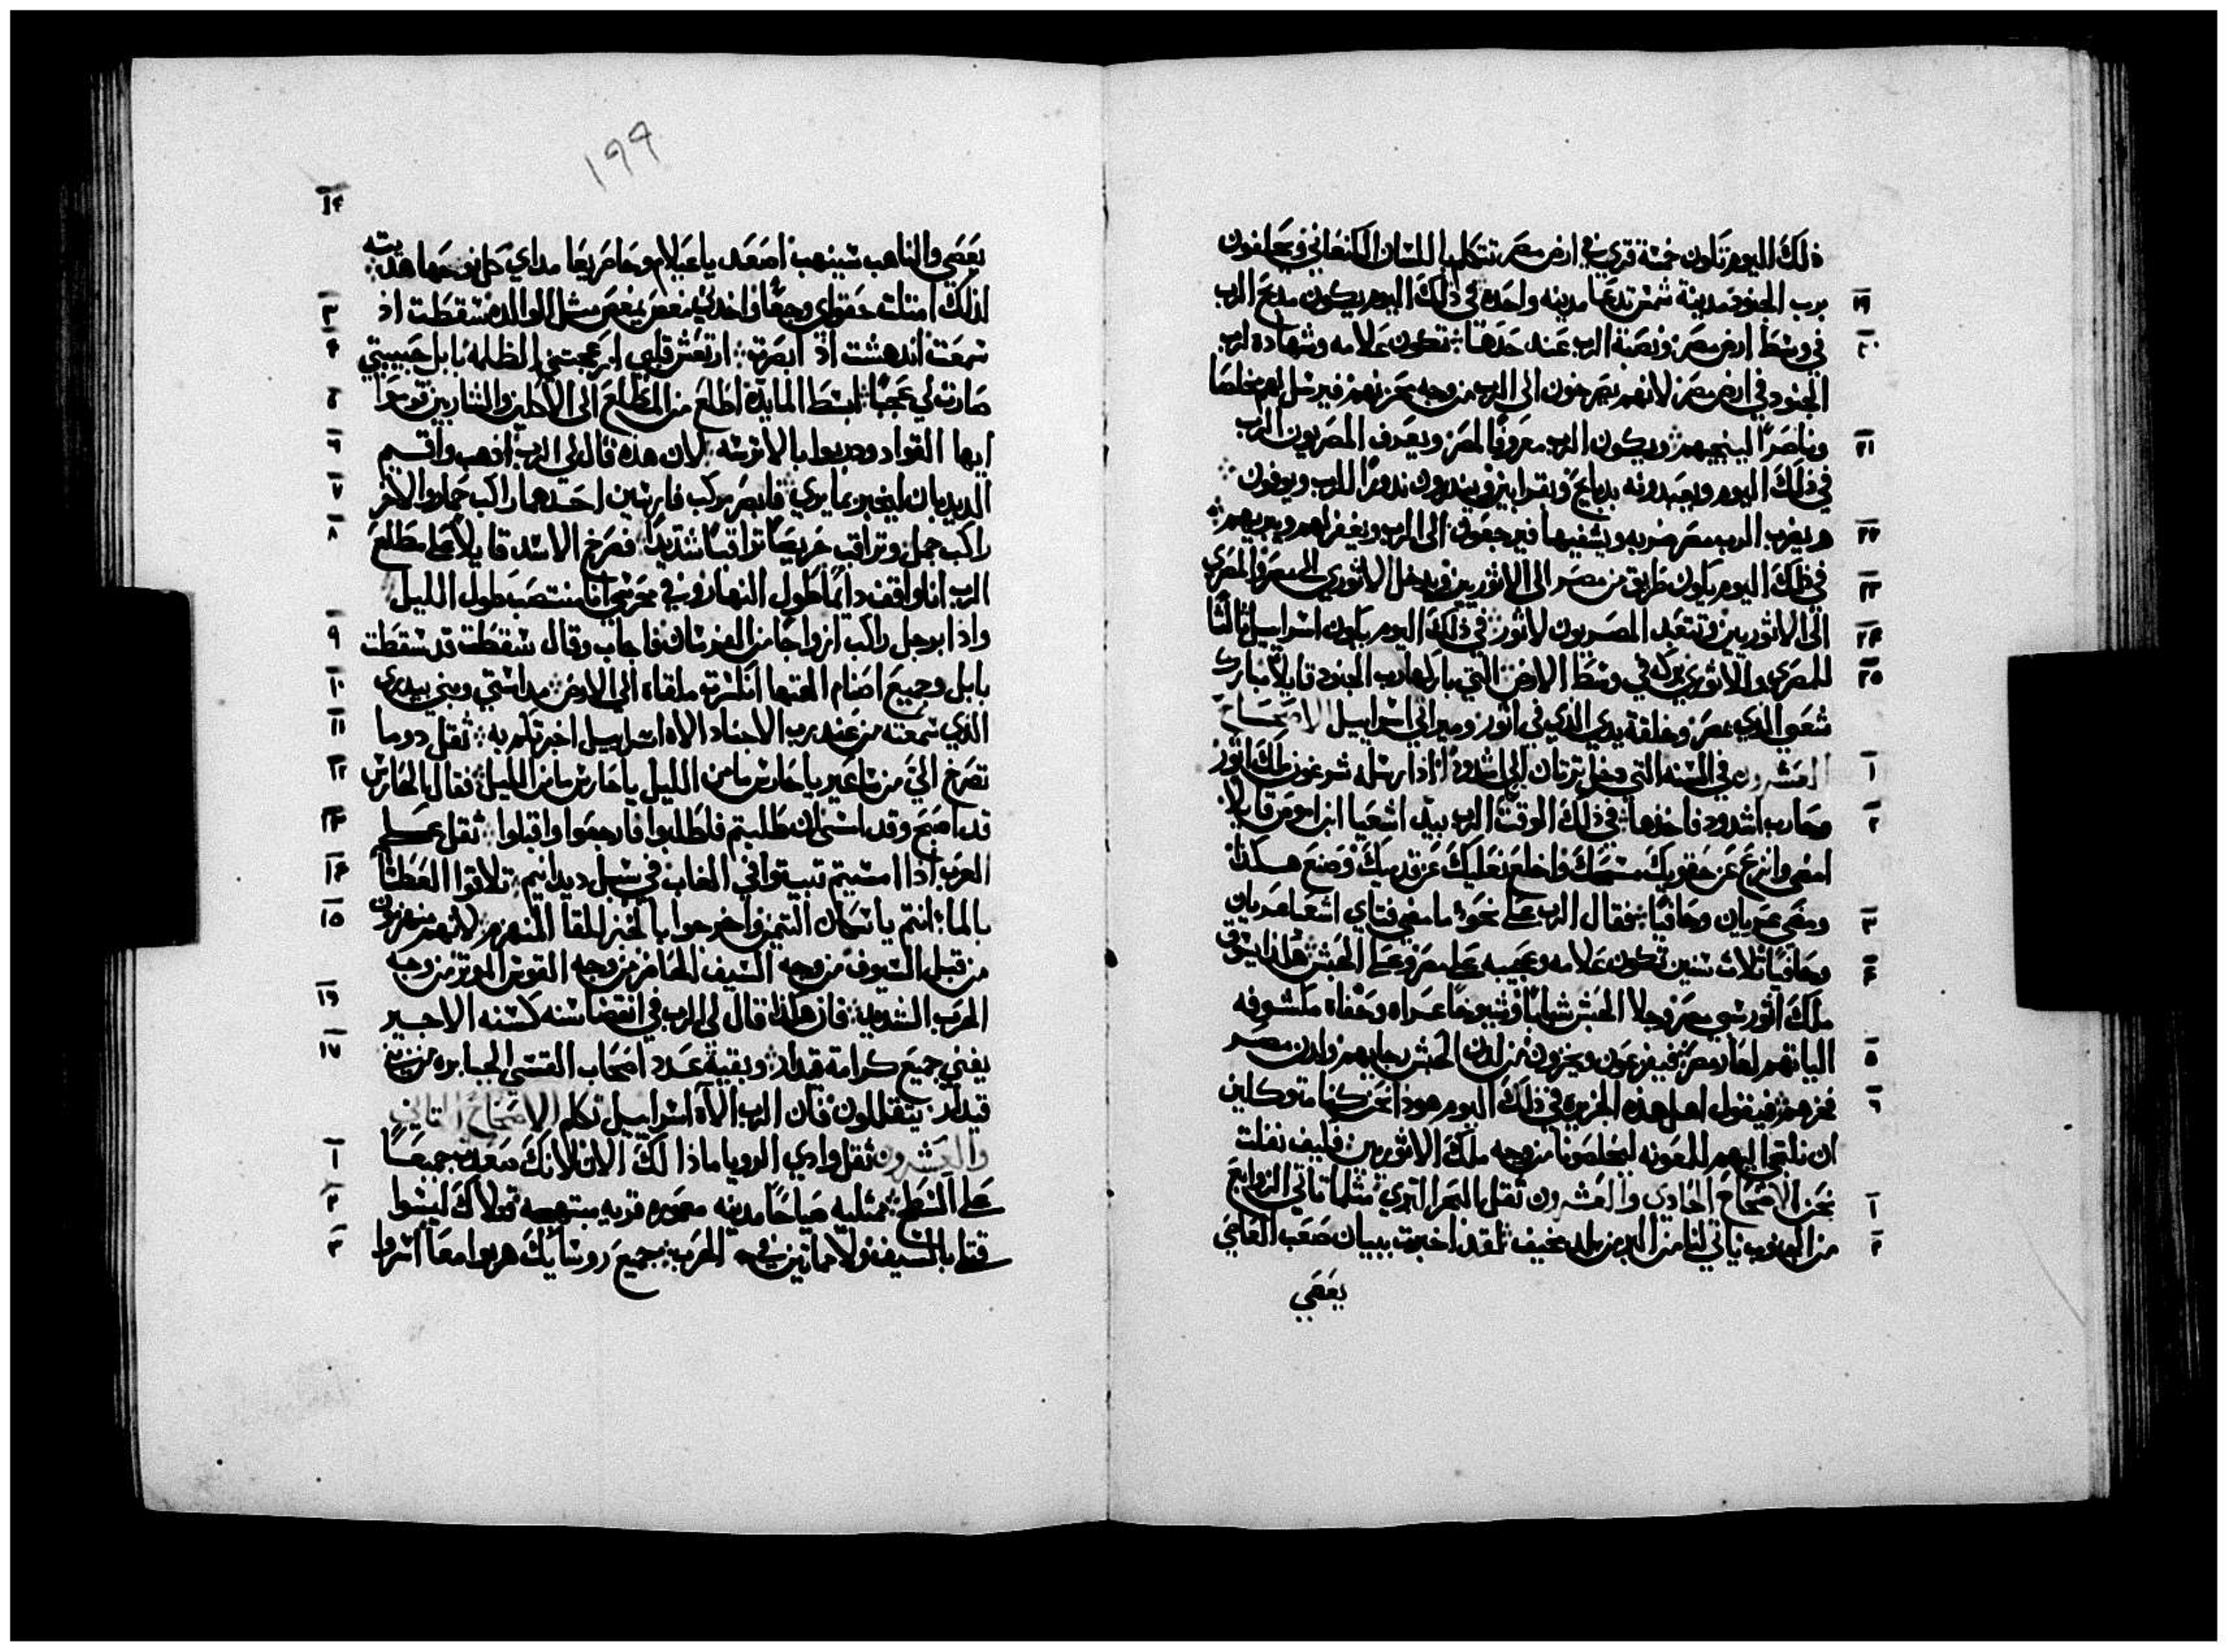 ذلك اليوم تكون خمسة قري في ارض مصر تتكلم باللسان الكنعاني ويحلفون
برب الجنود مدينة شمس تدعا مدينه واحده في ذلك اليوم يكون مدبح الرب ١٩
في وسط ارض مصر ونصبة الرب عند حدها تكون علامه وشهاده لرب ٢٠
الجنود في ارض مصر لانهم يصرخون الي الرب من وجه محزنهم فيرسل لهم مخلصا
وناصرا لينجيهم ويكون الرب معروفا لمصر ويعرف المصريون الرب ٢١
في ذلك اليوم ويعبدونه بدبايح وبقرابين ويندرون ندورا للرب ويوفون
ويضرب الرب مصر ضربه ويشفيها فيرجعون الى الرب ويغفر لهم ويبريهم ٢٢
في ذلك اليوم يكون طريق من مصر الى الاثوريين ويدخل الاثوري الي مصر والمصري ٢٣
الي الاثوريين وتتعبد المصريون لاثور في ذلك اليوم يكون اسراييل ثالثا ٢٤
للمصري والاثوري بركه في وسط الارض التي باركها رب الجنود قايلا مبارك ٢٥
شعبي الذي بمصر وخلقة يدي الذي في اثور وميراثي اسراييل الاصحاح
العشرون في السنه التي دخل ترتان الي اشدود اذ ارسله شرغون ملك اثور ١
وحارب اشدود فاخذها في ذلك الوقت الرب بيد اشعيا ابن اموص قايلا ٢
امضي وانزع عن حقويك مسحك واخلع نعليك عن قدميك وصنع هكذا
ومضي عريان وحافيا فقال الرب علي نحو ما مضي فتاي اشعيا عريان ٣
وحافيا ثلاث سنين تكون علامه وعجيبه على مصر وعلي الحبش هكذا يسوق ٤
ملك اثور سبي مصر وجلا الحبش شبابا وشيوخا عراه وحفاه مكشوفه
الياتهم لعار مصر فيفزعون ويخزون من لدن الحبش رجايهم ولدن مصر ٥
فخرهم فيقول اهل هذه الجزيره في ذلك اليوم هوذا نحن كنا متوكلين ٦
ان نلتجي اليهم للمعونه ليخلصونا من وجه ملك الاثوريين فكيف نفلت
نحن الاصحاح الحادي والعشرون ثقل بالبحر البري مثلما تاتي الزوابع ١
من الجنوب ياتي لنا من البر من بلد مخيف لقد اخبرت ببيان صعب العاصي ٢
يعصي
١٩٩
يعصي والناهب سينهب اصعد يا عيلام وحاصر يا ماداي كل نوحها هديته
لذلك امتلت حقواي وجعا واخدني مغص كمغص مثل الوالده سقطت اذ ٣
سمعت اندهشت اذ ابصرت ارتعش قلبي ازعجتني الظلمه بابل حبيبتي ٤
صارت لي عجبا ابسط المايدة اطلع من المطلع الى الاكلين والشاربين قوموا ٥
ايها القواد ودربوا بالاترسه لان هذه قال لي الرب اذهب واقم ٦
الديدبان ليخبر بما يري فابصر مركب فارسين احدهما راكب حمار والاخر ٧
راكب جمل وتراقب حريصا تراقبا شديدا فصرخ الاسد قايلا علي مطلع ٨
الرب انا واقف دايما طول النهار وفي محرسي انا منتصب طول الليل
واذا برجل راكب ازواجا من الفرسان فاجاب وقال سقطت قد سقطت ٩
بابل وجميع اصنام الهتها انكسرت ملقاه الي الارض مداستي وبني بيدري ١٠
الذي سمعته من عند رب الاجناد الاه اسراييل اخبرتكم به ثقل دوما ١١
تصرخ الي من ساعير يا حارس ما من الليل يا حارس ما من الليل فقال الحارس ١٢
قد اصبح وقد امسى ان طلبتم فاطلبوا فارجعوا واقبلوا ثقل علي ١٣
العرب اذا امسيتم تبيتوا في الغاب في سبل ديدانيم تلاقوا العطشا ١٤
بالما انتم يا سكان التيمن واخرجوا بالخبز للقا المنهزم لانهم منهزمون ١٥
من قبل السيوف من وجه السيف الحاضر من وجه القوس الموتر من وجه
الحرب الشديد فان هكذا قال لي الرب في انقضا سنه كسنه الاجير ١٦
يفني جميع كرامة قيدار وبقية عدد اصحاب القسي الجبابره من بني ١٧
قيدار يتقللون فان الرب الاه اسراييل تكلم الاصحاح الثاني
والعشرون ثقل وادي الرويا ماذا لك الان لانك صعدت جميعا ١
علي السطح ممتليه صياحا مدينه معموره قريه مبتهجه قتلاك ليسوا ٢
قتلي بالسيف ولا ماتين في الحرب جميع روسايك هربوا معا اسروا ٣